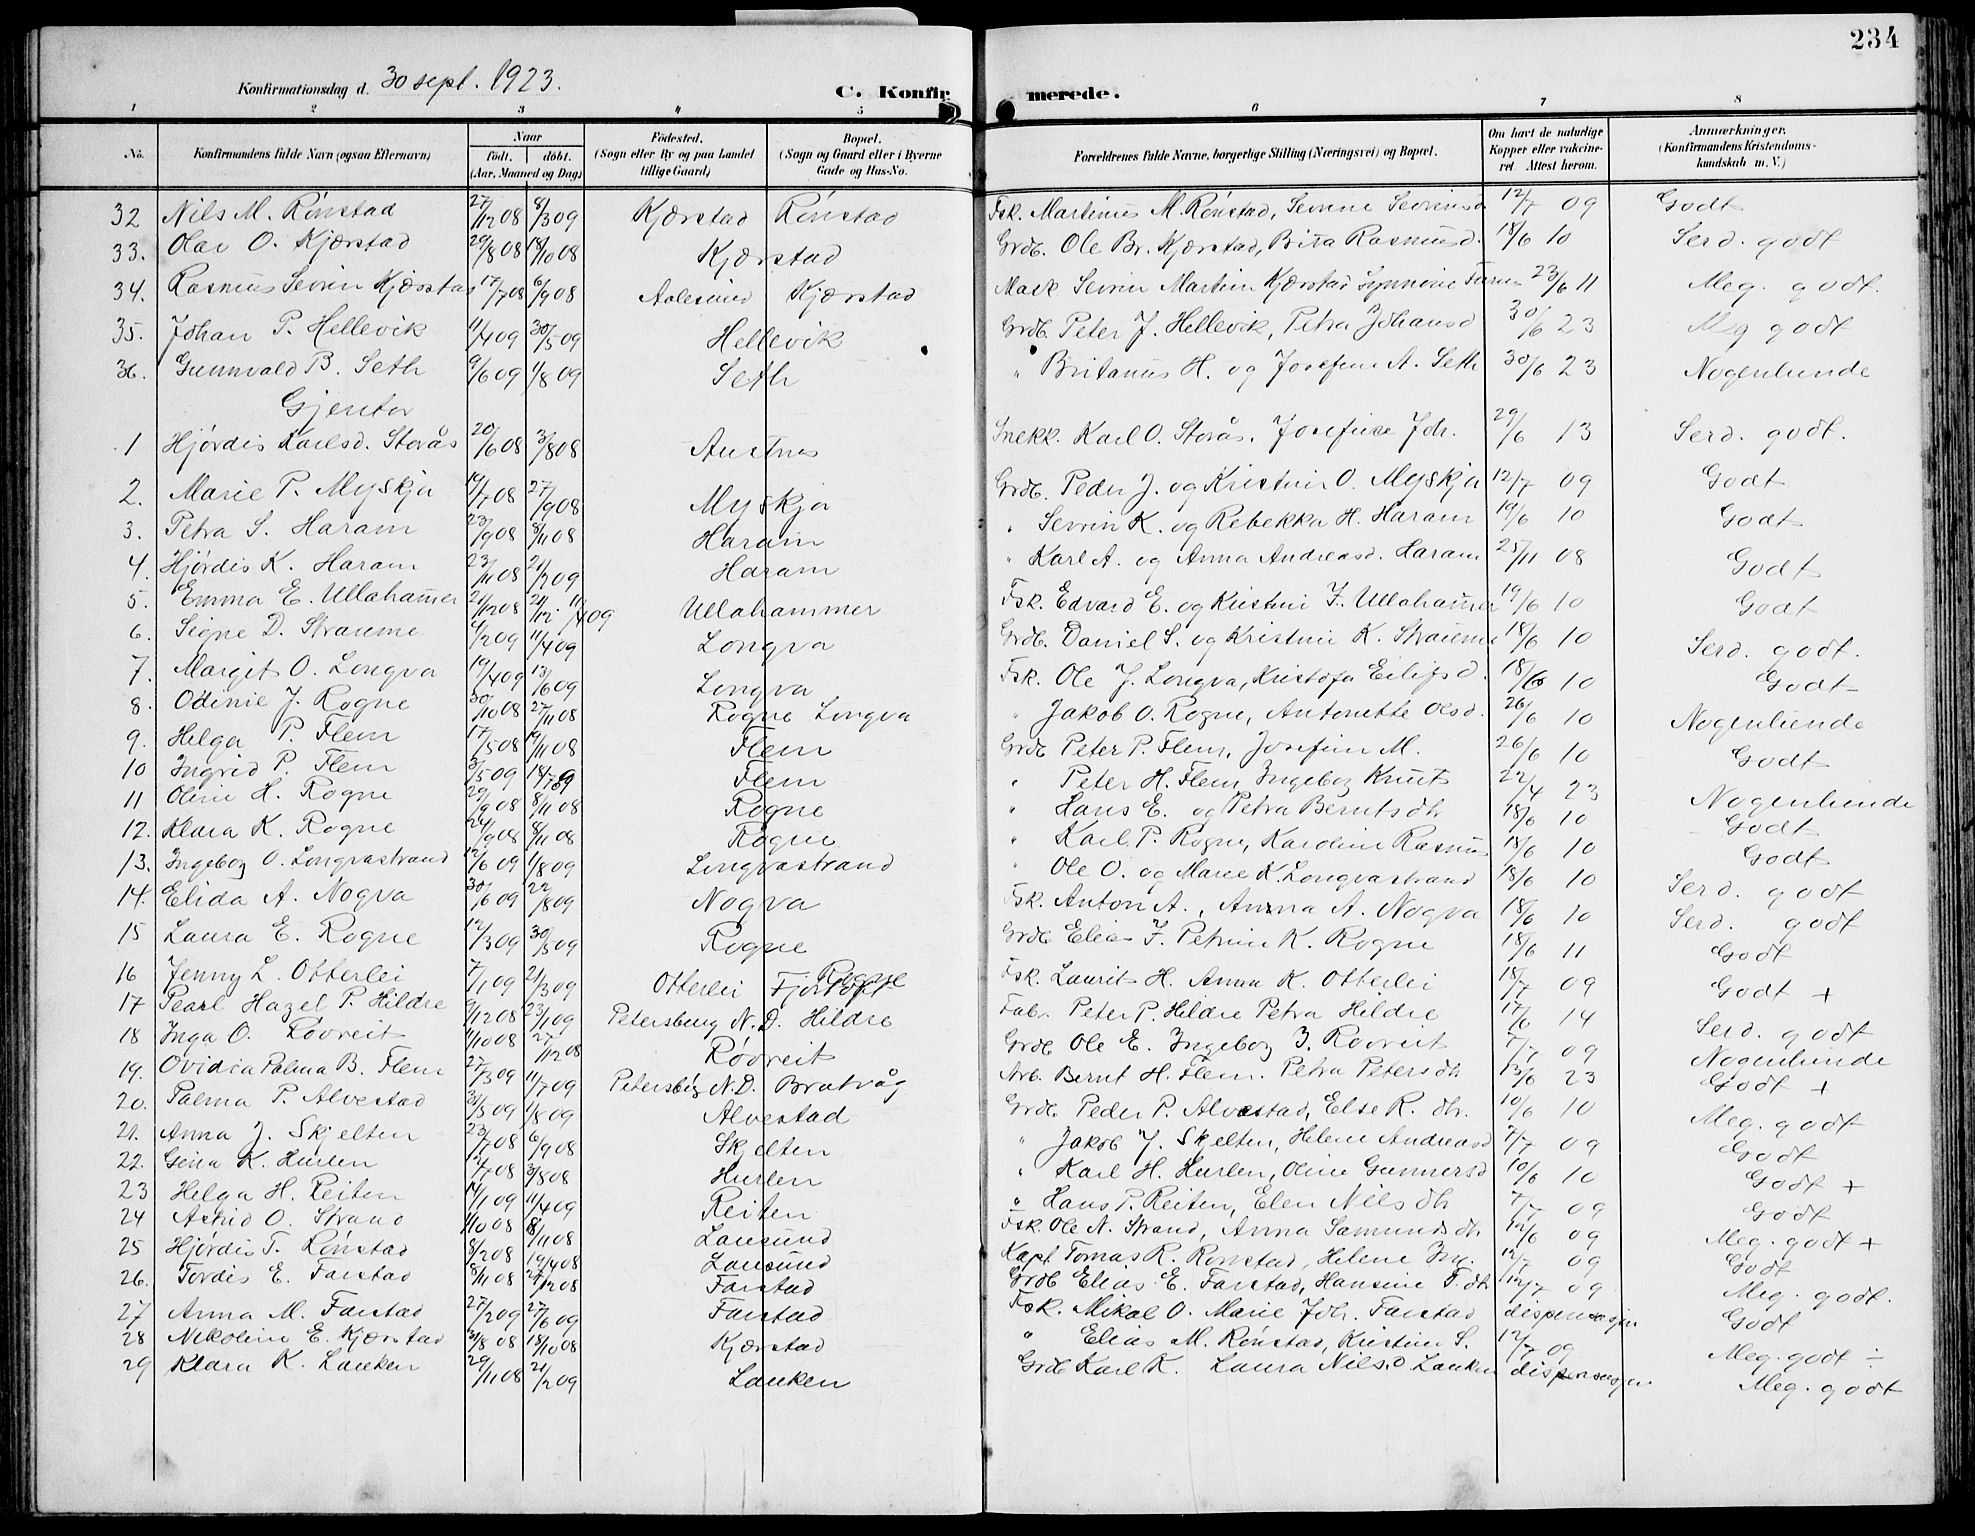 234
Konfirmationsdag d. 30 sept. 1923. C. Konfirmerede.
1 2 3 4 5 6 7 8
No. Konfirmandens fulde Navn (ogsaa Efternavn) Naar født. døbt. (Aar, Maaned og Dag) Fødested. (Sogn eller By og paa Landet tillige Gaard) Bopæl. (Sogn og Gaard eller i Byerne Gade og Hus-No. Forældrenes fulde Navne, borgerlige Stilling (Næringsvei) og Bopæl. Om havt de naturlige Kopper eller vakcineret Attest herom. Anmærkninger. (Konfirmandens Kristendomskundskab m. V.)
32 Nils M. Rönstad 27/12 08 8/3 09 Kjærstad Rönstad Fsk. Martinus M. Rönstad, Sevrine Sevrinsd 12/7 09 Godt
33. Olav O. Kjærstad 29/8 08 18/10 08 Kjærstad Grdb. Ole Br. Kjærstad, Brita Rasmusd. 18/6 10 Serd. godt
34. Rasmus Sevrin Kjærstad 17/7 08 6/9 08 Aalesund Kjærstad Mask Sevrin Martin Kjærstad Synnøve 23/6 11 Meg. godt.
35. Johan P. Hellevik 11/4 09 30/5 09 Hellevik Grdb. Peter J. Hellevik, Petra Johansd 30/6 23 Meg godt
36. Gunnvald B. Seth 9/6 09 1/8 09 Seth " Britanus H. og Josefine A. Seth 30/6 23 Nogenlunde
Gjentor
1 Hjördis Karlsd. Storås 20/6 08 3/8 08 Austnes Snekk. Karl O. Storås. Josefine Joh. 29/6 13 Serd. godt.
2. Marie P. Myskja 19/7 08 27/9 08 Myskja Grdb. Peder J. og Kristine O. Myskja 12/7 09 Godt
3. Petra S. Haram 23/9 08 8/11 08 Haram " Sevrin K. og Rebekka H. Haram 19/6 10 Godt
4. Hjördis K. Haram 23/11 08 21/2 09 Haram " Karl A. og Anna Andreasd. Haram 25/11 08 Godt
5. Emma E. Ullahammer 21/12 08 21/12 11/4 09 Ullahammer Fsk. Edvard E. og Kristine J. Ullahammer 19/6 10 Godt
6. Signe D. Straume 4/2 09 11/4 09 Longva Grdb. Daniel S. og Kristine K. Straume 18/6 10 Serd. godt.
7. Margit O. Longva 19/4 09 13/6 09 Longva Fsk. Ole J. Longva, Kristofa Eilifsd. 18/6 10 Godt
8. Odinie J. Rogne 30/10 08 27/11 08 Rogne Longva " Jakob O. Rogne, Antonette Olsd. 26/6 10 Nogenlunde
9. Helga P. Flem 17/5 08 19/11 08 Flem Grdb Peter P. Flem, Josefine M. 26/6 10 Godt
10 Ingrid P. Flem 3/5 09 18/7 09 Flem " Peter H. Flem, Ingeborg Knuts 22/4 23 Nogenlunde
11 Oline H. Rogne 29/9 08 8/11 08 Rogne " Hans E. og Petra Berntsdtr 18/6 10 Godt
12. Klara K. Rogne 24/9 08 8/11 08 Rogne " Karl P. Rogne, Karoline Rasmus 18/6 10 Godt
13. Ingeborg O. Longvastrand 12/6 09 1/8 09 Longvastrand " Ole O. og Marie K. Longvastrand 18/6 10 Serd. godt
14. Elida A. Nogva 30/6 09 22/8 09 Nogva Fsk. Anton A., Anna A. Nogva 18/6 10 Serd. godt
15 Laura E. Rogne 12/3 09 30/5 09 Rogne Grdb Elias J. Petrine K. Rogne 18/6 11 Godt
16 Jenny L. Otterlei 7/1 09 21/3 09 Otterlei Rogne Fjørtoft Fsk. Laurits H. Anna K. Otterlei 18/7 09 Godt +
17 Pearl Hazel P. Hildre 9/12 08 23/1 09 Petersberg N.D. Hildre Fab. Peter P. Hildre Petra Hildre 17/6 14 Serd. godt
18 Inga O. Rövreit 11/10 08 27/12 08 Rövreit Grdb Ole E. Ingeborg J. Rövreit 7/7 09 Nogenlunde
19. Ovidia Palma B. Flem 27/3 09 11/7 09 Petersbg N.D. Bratvåg Arb. Bernt H. Flem. Petra Petersdtr 13/6 23 Godt +
20. Palma P. Alvestad 31/5 09 1/8 09 Alvestad Grdb Peder P. Alvestad, Else R. dtr. 10/6 10 Meg. godt
21. Anna J. Skjelten 23/7 08 6/9 08 Skjelten " Jakob J. Skjelten, Helene Andreasd 7/7 09 Godt
22. Gina K. Hurlen 12/7 08 3/8 08 Hurlen " Karl H. Hurlen, Oline Gunnersd 10/6 10 Godt +
23 Helga H. Reiten 14/1 09 11/4 09 Reiten " Hans P. Reiten, Elen Nilsdtr 7/7 09 Godt
24 Astrid O. Strand 1/10 08 8/11 08 Lausund Fsk. Ole N. Strand, Anna Samundsdtr. 12/6 09 Meg. godt +
25 Hjördis T. Rönstad 8/2 08 19/4 08 Lausund Kapt Tomas R. Rönstad, Helene Ing. 12/7 09 Godt
26. Tordis E. Farstad 8/11 08 27/12 08 Farstad Grdb Elias E. Farstad, Hansine T. dtr 12/7 09 Meg. godt.
27 Anna M. Farstad 27/2 09 27/6 09 Farstad Fsk. Mikal O. Marie Joh. Farstad dispensasjon Godt
28 Nikoline E. Kjærstad 31/8 08 18/10 08 Kjærstad " Elias M. Rönstad, Kristine S. 12/7 09 Meg. godt ÷
29 Klara K. Lauken 29/11 08 21/2 09 Lauken Grdb Karl K. Laura Nilsd Lauken dispensasjon Meg. godt